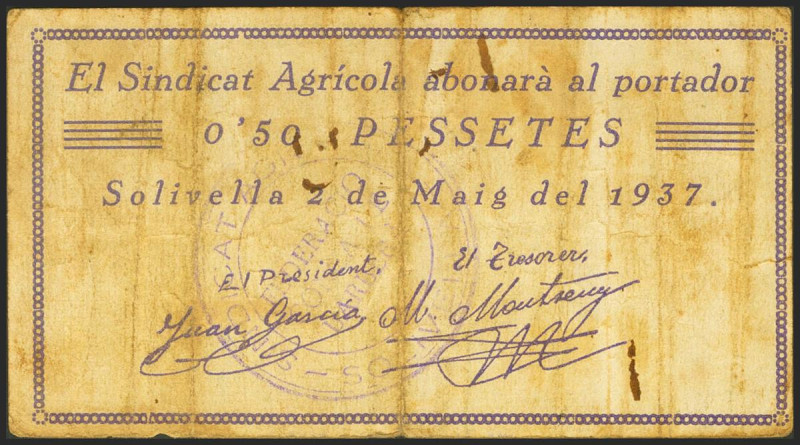 El Sindicat Agrícola abonarà al portador
0'50 PESSETES
Solivella 2 de Maig del 1937.
El President,
El Tresorer,
Juan Garcia
M. Montseny